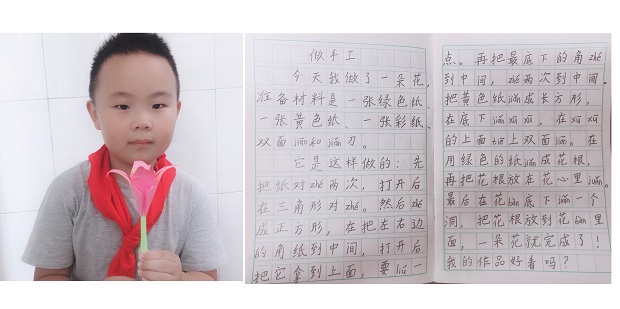 做手工
今天我做了一朵花,
准备材料是一张绿色纸、
一张黄色纸、一张彩纸、
双面jiāo和jiǎn刀。
它是这样做的:先
把纸对zhé两次,打开后
在三角形对zhé。然后zhé
成正方形,在把左右边
的角纸到中间,打开后
把它拿到上面,要liú一
点。再把最底下的角zhé
到中间,zhé两次到中间。
把黄色纸jiǎn成长方形,
在底下jiǎn
的上面tiē上双面jiāo。在
用绿色的纸jiǎn成花根,
再把花根放在花心里juǎn。
最后在花bàn底下jiǎn一个
洞,把花根放到花bàn里
面,一朵花就完成了!
我的作品好看吗?